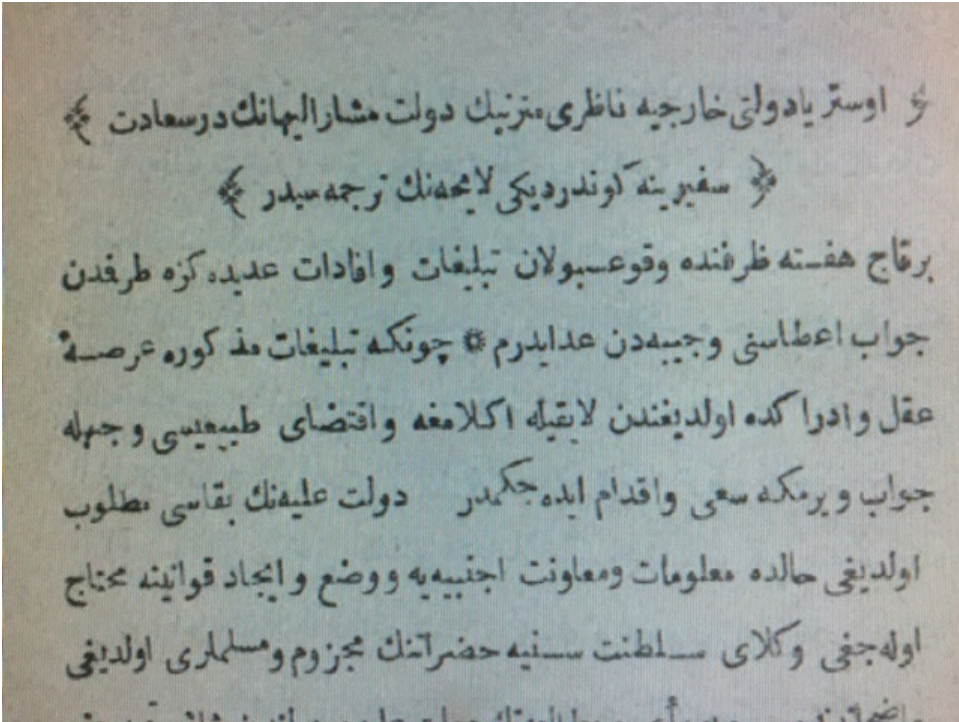 ﴿ اوستریا دولتی خارجیه ناظری مترنیك دولت مشار الیهانك در سعادت ﴾
﴿ سفیرینه كوندردیكی لایحه‌نك ترجمه سیدر ﴾
برقاج هفته ظرفنده وقوعبولان تبلیغات و افادات عدیده كزه طرفدن
جواب اعطاسنی وجیبه‌دن عد ایدرم ❁ چونكه تبلیغات مذكوره عرصهٔ
عقل و ادراكده اولدیغندن لایقیله اكلامغه و اقتضای طبیعیسی وجهله
جواب ویرمكه سعی و اقدام ایده‌جكمدر دولت علیه‌نك بقاسی مطلوب
اولدیغی حالده معلومات ومعاونت اجنبیه‌یه ووضع و ایجاد قوانینه محتاج
اوله‌جغی وكلای سلطنت سنیه حضراتنك مجزوم ومسلملری اولدیغی